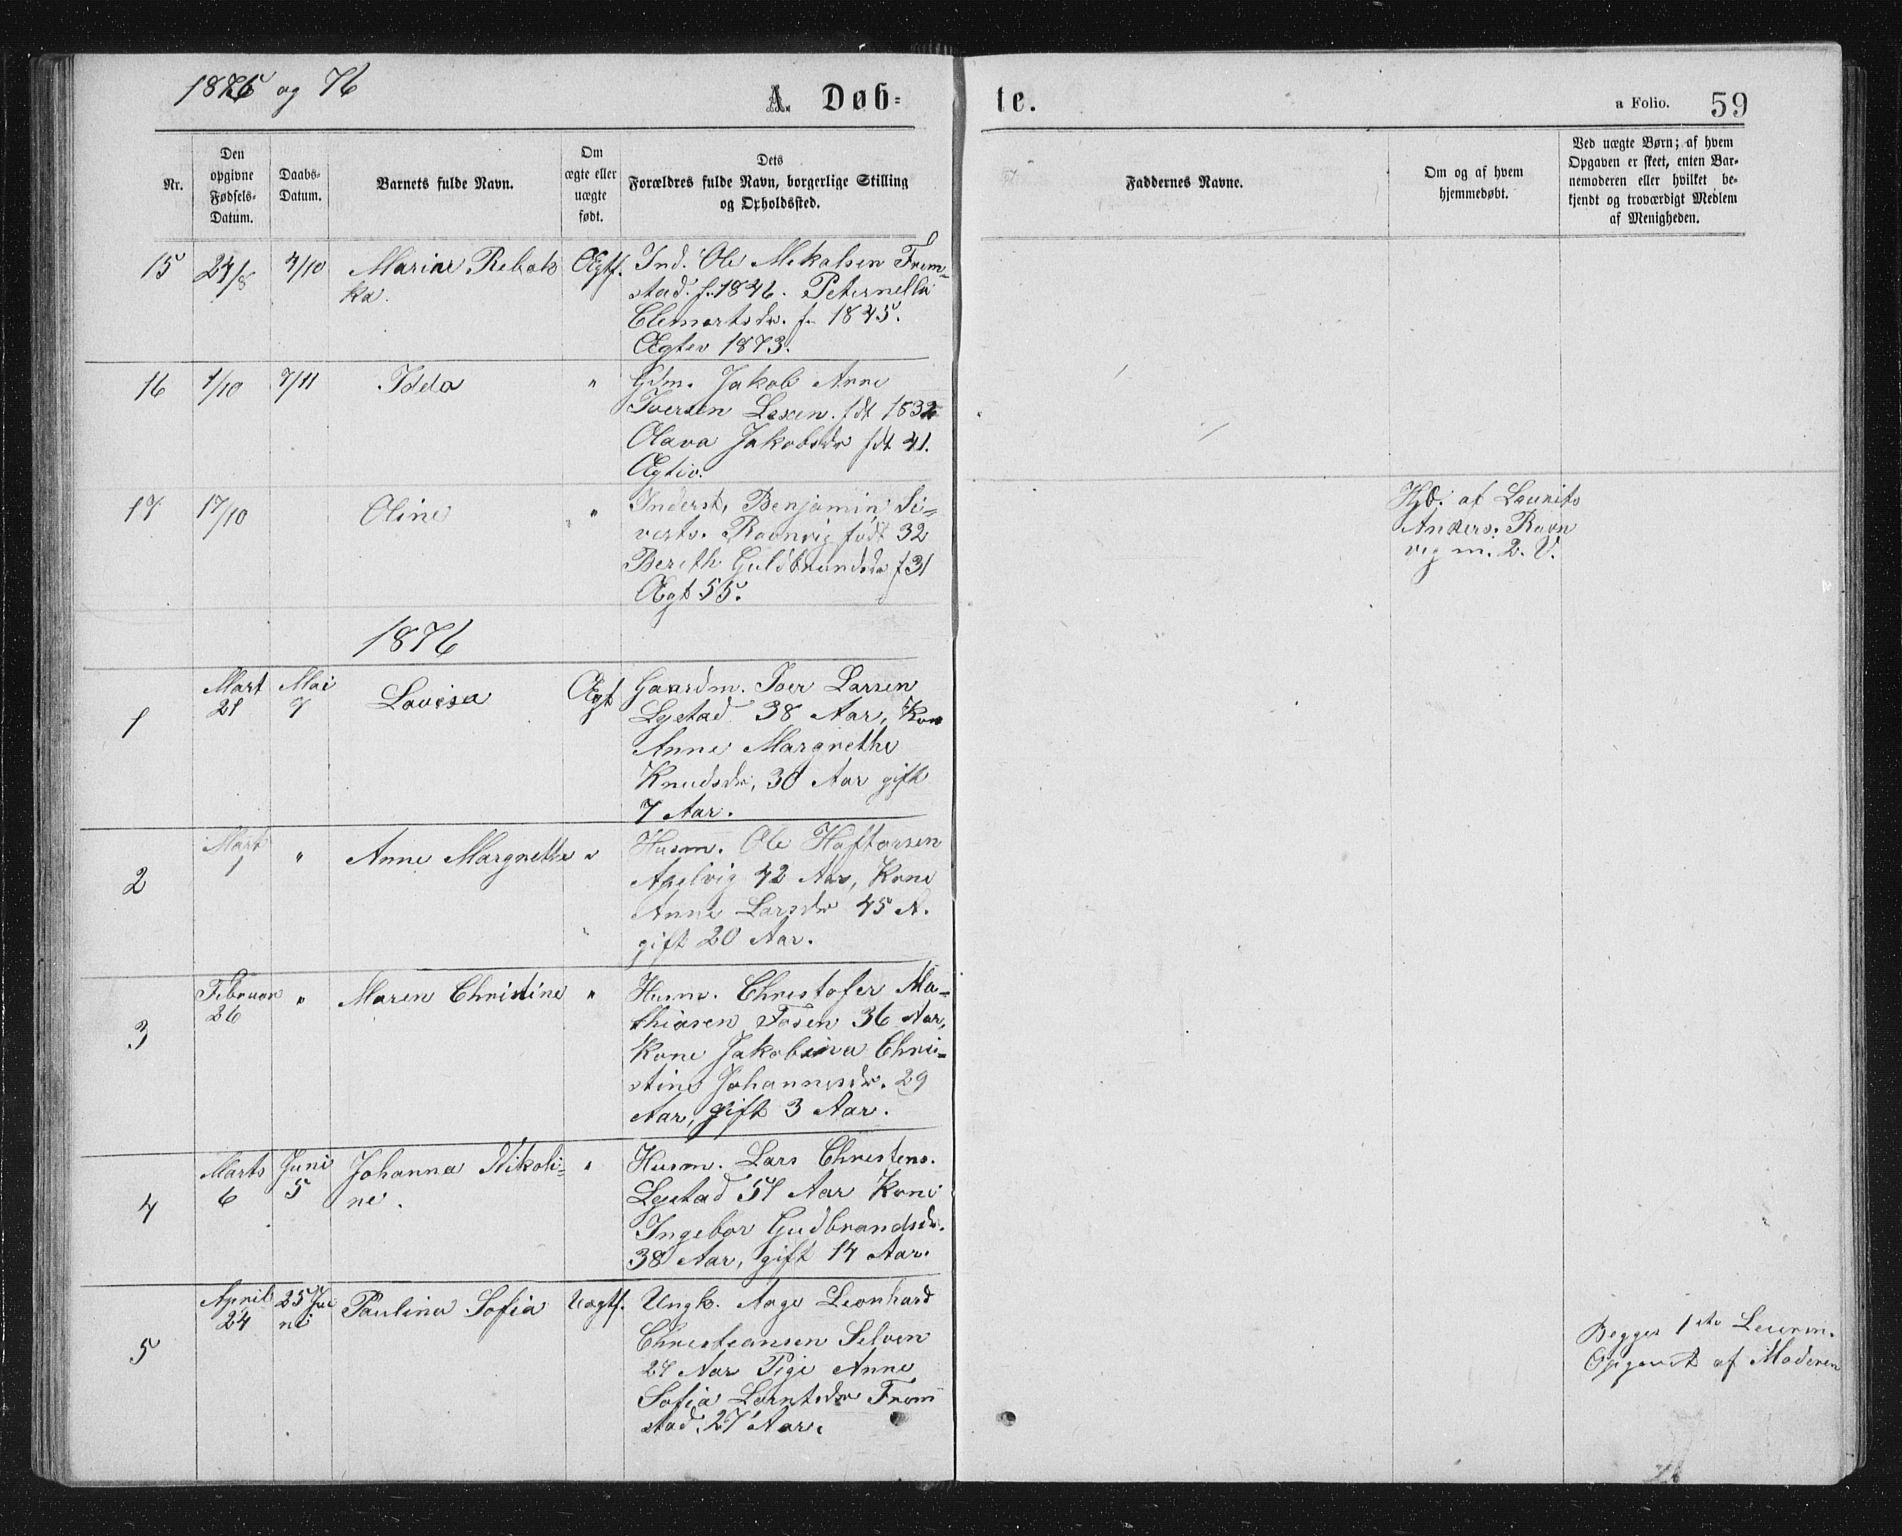 1875 og 76
A. Døb=
te.
a Folio. 59
Nr.
Den opgivne Fødsels-Datum.
Daabs-Datum.
Barnets fulde Navn.
Om ægte eller uægte født.
Dets Forældres fulde Navn, borgerlige Stilling og Opholdssted.
Faddernes Navne.
Om og af hvem hjemmedøbt.
Ved uægte Børn; af hvem Opgaven er skeet, enten Barnemoderen eller hvilket bekjendt og troværdigt Medlem af Menigheden.
15 24/8 4/10 Marie Rebek Ægtf. Ind. Ole Mikalsen Frem-
ka. stad. f. 1846. Peternella
Clemertsdr. f. 1845.
Ægtev 1873.
16 1/10 7/11 Idda " Gdm. Jakob Arne
Iversen Lexen. fdt 1832
Olava Jakobsdr fdt 41.
Ægtev.
17 17/10 Oline " Inderst, Benjamin Si-
verts. Ravnvig født 32
Bereth Guldbrandsdr f 31
Ægt 55.
Hjd. af Launits
Anders. Ravn
vig m. 2. V.
1876
1 Mart 21 Mai 7 Lovisa Ægt Gaardm. Iver Larsen
Lystad 38 Aar, Kone
Anne Margrethe
Knudsdr, 30 Aar gift
7 Aar.
2 Mart 1 " Anne Margrethe " Husm. Ole Haftorsen
Apelvig 42 Aar, Kone
Anne Larsdr 45 A.
gift 20 Aar.
3 Februar 26 " Maren Christine " Husm. Christofer Ma-
thiasen Fosen 36 Aar,
Kone Jakobina Chri-
stine Johannesdr. 29
Aar, gift 3 Aar.
4 Marts 6 Juni 5 Johanna Nikoli- " Husm. Lars Christens.
ne. Lystad 51 Aar Kone
Ingebor Gudbrandsdr.
38 Aar, gift 14 Aar.
5 April 24 25 Juni Paulina Sofia Uægtf. Ungk. Aage Leonhard
Christiansen Selven
24 Aar Pige Anne
Sofia Lorntsdr From
stad. 27 Aar.
Begges 1ste Leierm.
Opgivet af Moderen